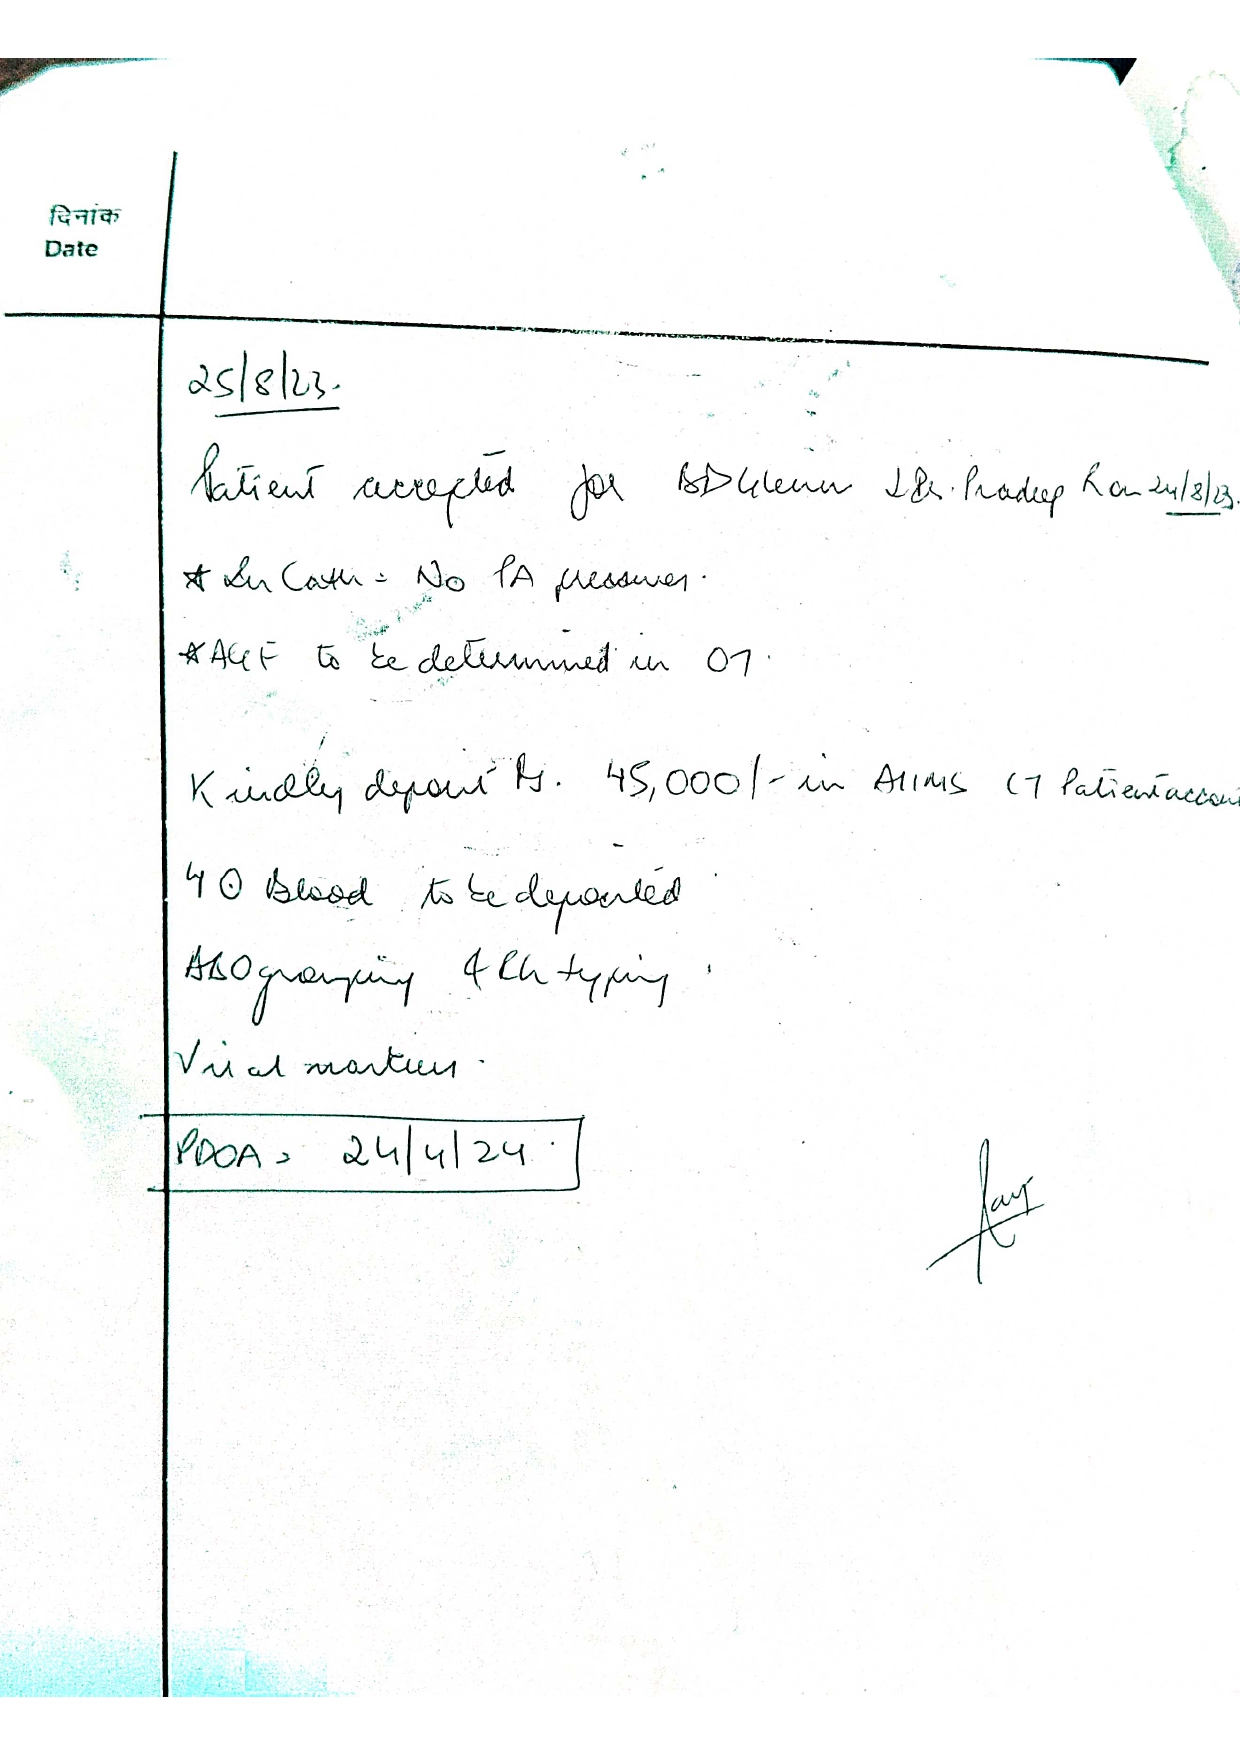 दिनांक
Date
25/8/23.
Patient accepted for BD Glenn Dr. Pradeep R on 24/8/23.
* In Cath = No PA pressures.
* AGE to be determined in OT.
Kindly deposit Rs. 45,000/- in AIIMS CT Patient account
4 U Blood to be deposited
ABO grouping & Rh typing.
Viral markers.
PDOA = 24/4/24.